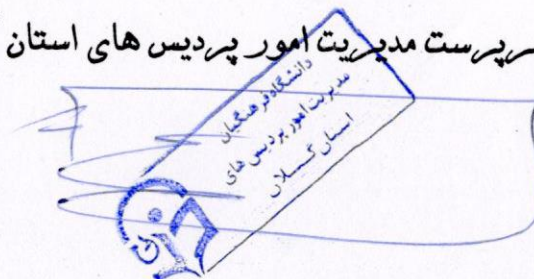 سرپرست مدیریت امور پردیس های استان
دانشگاه فرهنگیان
مدیریت امور پردیس های
استان گیلان